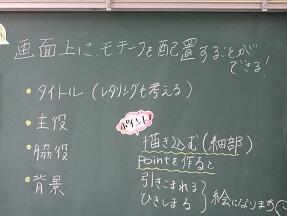 画面上に、モチーフを配置することが
できる!
・タイトル(レタリングも考える)
・主役
・脇役
・背景
ポイント!
描き込む(細部)
Pointを作ると
引きこまれる
ひきしまる
絵になります